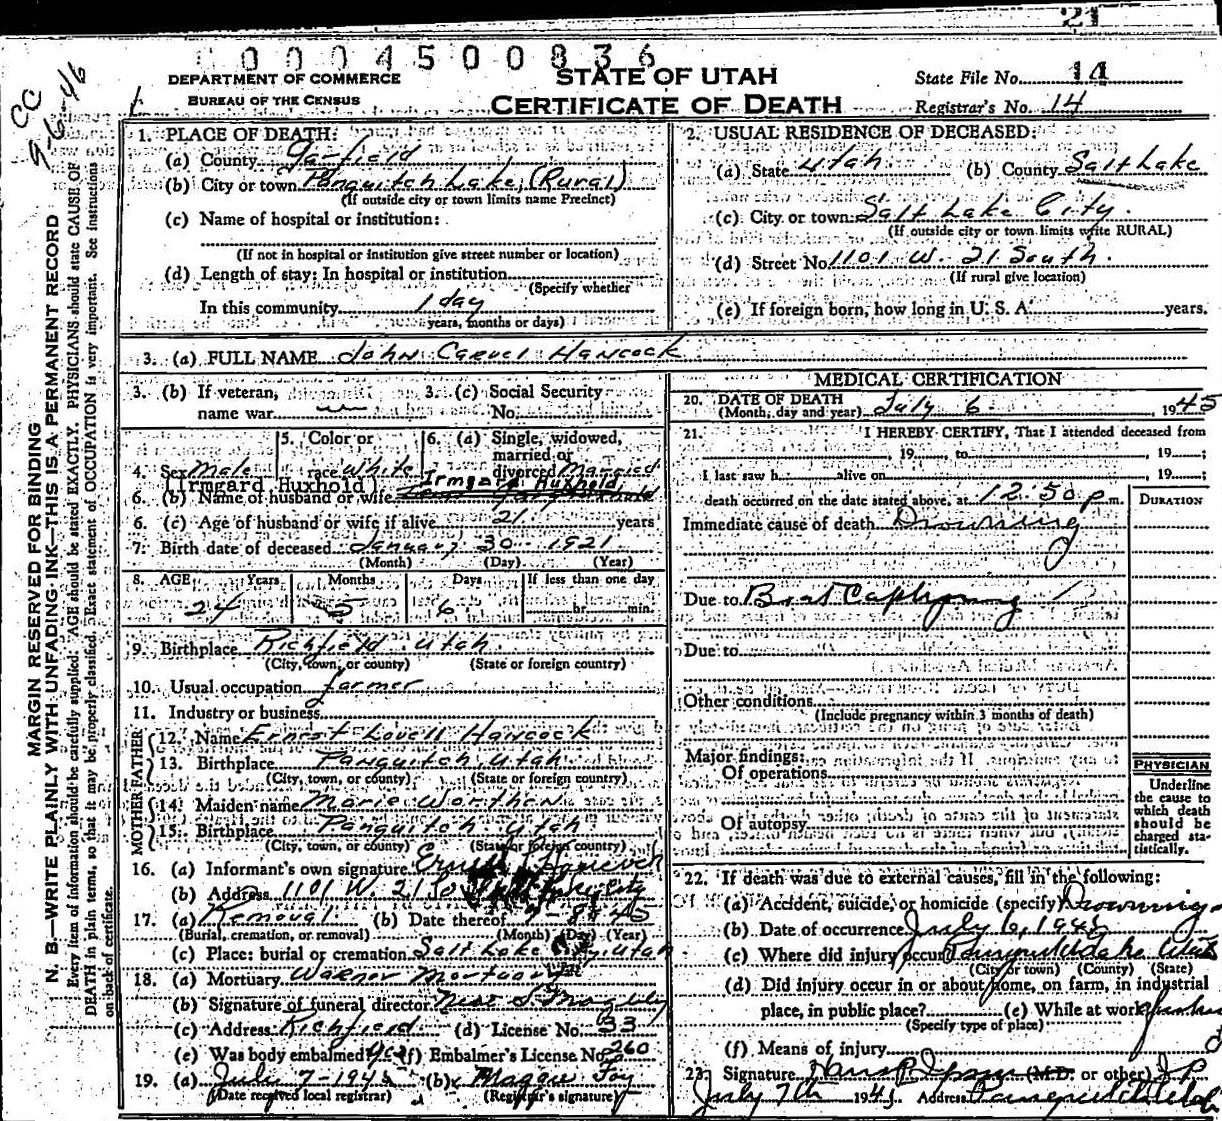 21
0004500836
CC
9-6-46
DEPARTMENT OF COMMERCE
BUREAU OF THE CENSUS
STATE OF UTAH
CERTIFICATE OF DEATH
State File No. 14
Registrar's No. 14
MARGIN RESERVED FOR BINDING
N. B.—WRITE PLAINLY WITH UNFADING INK—THIS IS A PERMANENT RECORD
Every item of information should be carefully supplied. AGE should be stated EXACTLY. PHYSICIANS should state CAUSE OF
DEATH in plain terms, so that it may be properly classified. Exact statement of OCCUPATION is very important. See instructions
on back of certificate.
1. PLACE OF DEATH:
(a) County Garfield
(b) City or town Panguitch Lake, (Rural)
(If outside city or town limits name Precinct)
(c) Name of hospital or institution:
(If not in hospital or institution give street number or location)
(d) Length of stay: In hospital or institution
(Specify whether
In this community 1 day
years, months or days)
2. USUAL RESIDENCE OF DECEASED:
(a) State Utah (b) County Salt Lake
(c) City or town Salt Lake City.
(If outside city or town limits write RURAL)
(d) Street No. 1101 W. 21 South.
(If rural give location)
(e) If foreign born, how long in U. S. A. years.
3. (a) FULL NAME John Carvel Hancock
3. (b) If veteran, name war
3. (c) Social Security No.
4. Sex Male
5. Color or race White
6. (a) Single, widowed, married or divorced Married
(Irmgard Huxhold) Irmgard Huxhold
6. (b) Name of husband or wife
6. (c) Age of husband or wife if alive 21 years
7. Birth date of deceased January 30 1921
(Month) (Day) (Year)
8. AGE Years Months Days If less than one day
24 5 6 hr. min.
9. Birthplace Richfield Utah
(City, town, or county) (State or foreign country)
10. Usual occupation farmer
11. Industry or business
FATHER
12. Name Ernest Lovell Hancock
13. Birthplace Panguitch, Utah
(City, town, or county) (State or foreign country)
MOTHER
14. Maiden name Marie Worthen
15. Birthplace Panguitch Utah
(City, town, or county) (State or foreign country)
16. (a) Informant's own signature Ernest L Hancock
(b) Address 1101 W. 21 So
17. (a) Removal (b) Date thereof 7-8-45
(Burial, cremation, or removal) (Month) (Day) (Year)
(c) Place: burial or cremation Salt Lake City, Utah
18. (a) Mortuary Warnor Mortuary
(b) Signature of funeral director
(c) Address Richfield (d) License No. 33
(e) Was body embalmed yes (f) Embalmer's License No. 260
19. (a) July 7-1945 (b) Maggie Foy
(Date received local registrar) (Registrar's signature)
MEDICAL CERTIFICATION
20. DATE OF DEATH
(Month, day and year) July 6 , 1945
21. I HEREBY CERTIFY, That I attended deceased from
, 19 , to , 19 ;
I last saw h alive on , 19 ;
death occurred on the date stated above, at 12:50 p.m.
DURATION
Immediate cause of death Drowning
Due to Boat Caphzing
Due to
Other conditions
(Include pregnancy within 3 months of death)
Major findings:
Of operations
Of autopsy
PHYSICIAN
Underline
the cause to
which death
should be
charged sta-
tistically.
22. If death was due to external causes, fill in the following:
(a) Accident, suicide, or homicide (specify Drowning
(b) Date of occurrence July 6, 1945
(c) Where did injury occur Panguitch Lake Utah
(City or town) (County) (State)
(d) Did injury occur in or about home, on farm, in industrial
place, in public place? (e) While at work
(Specify type of place)
(f) Means of injury
23. Signature (M.D. or other) J.P.
July 7th 1945 Address Panguitch Utah